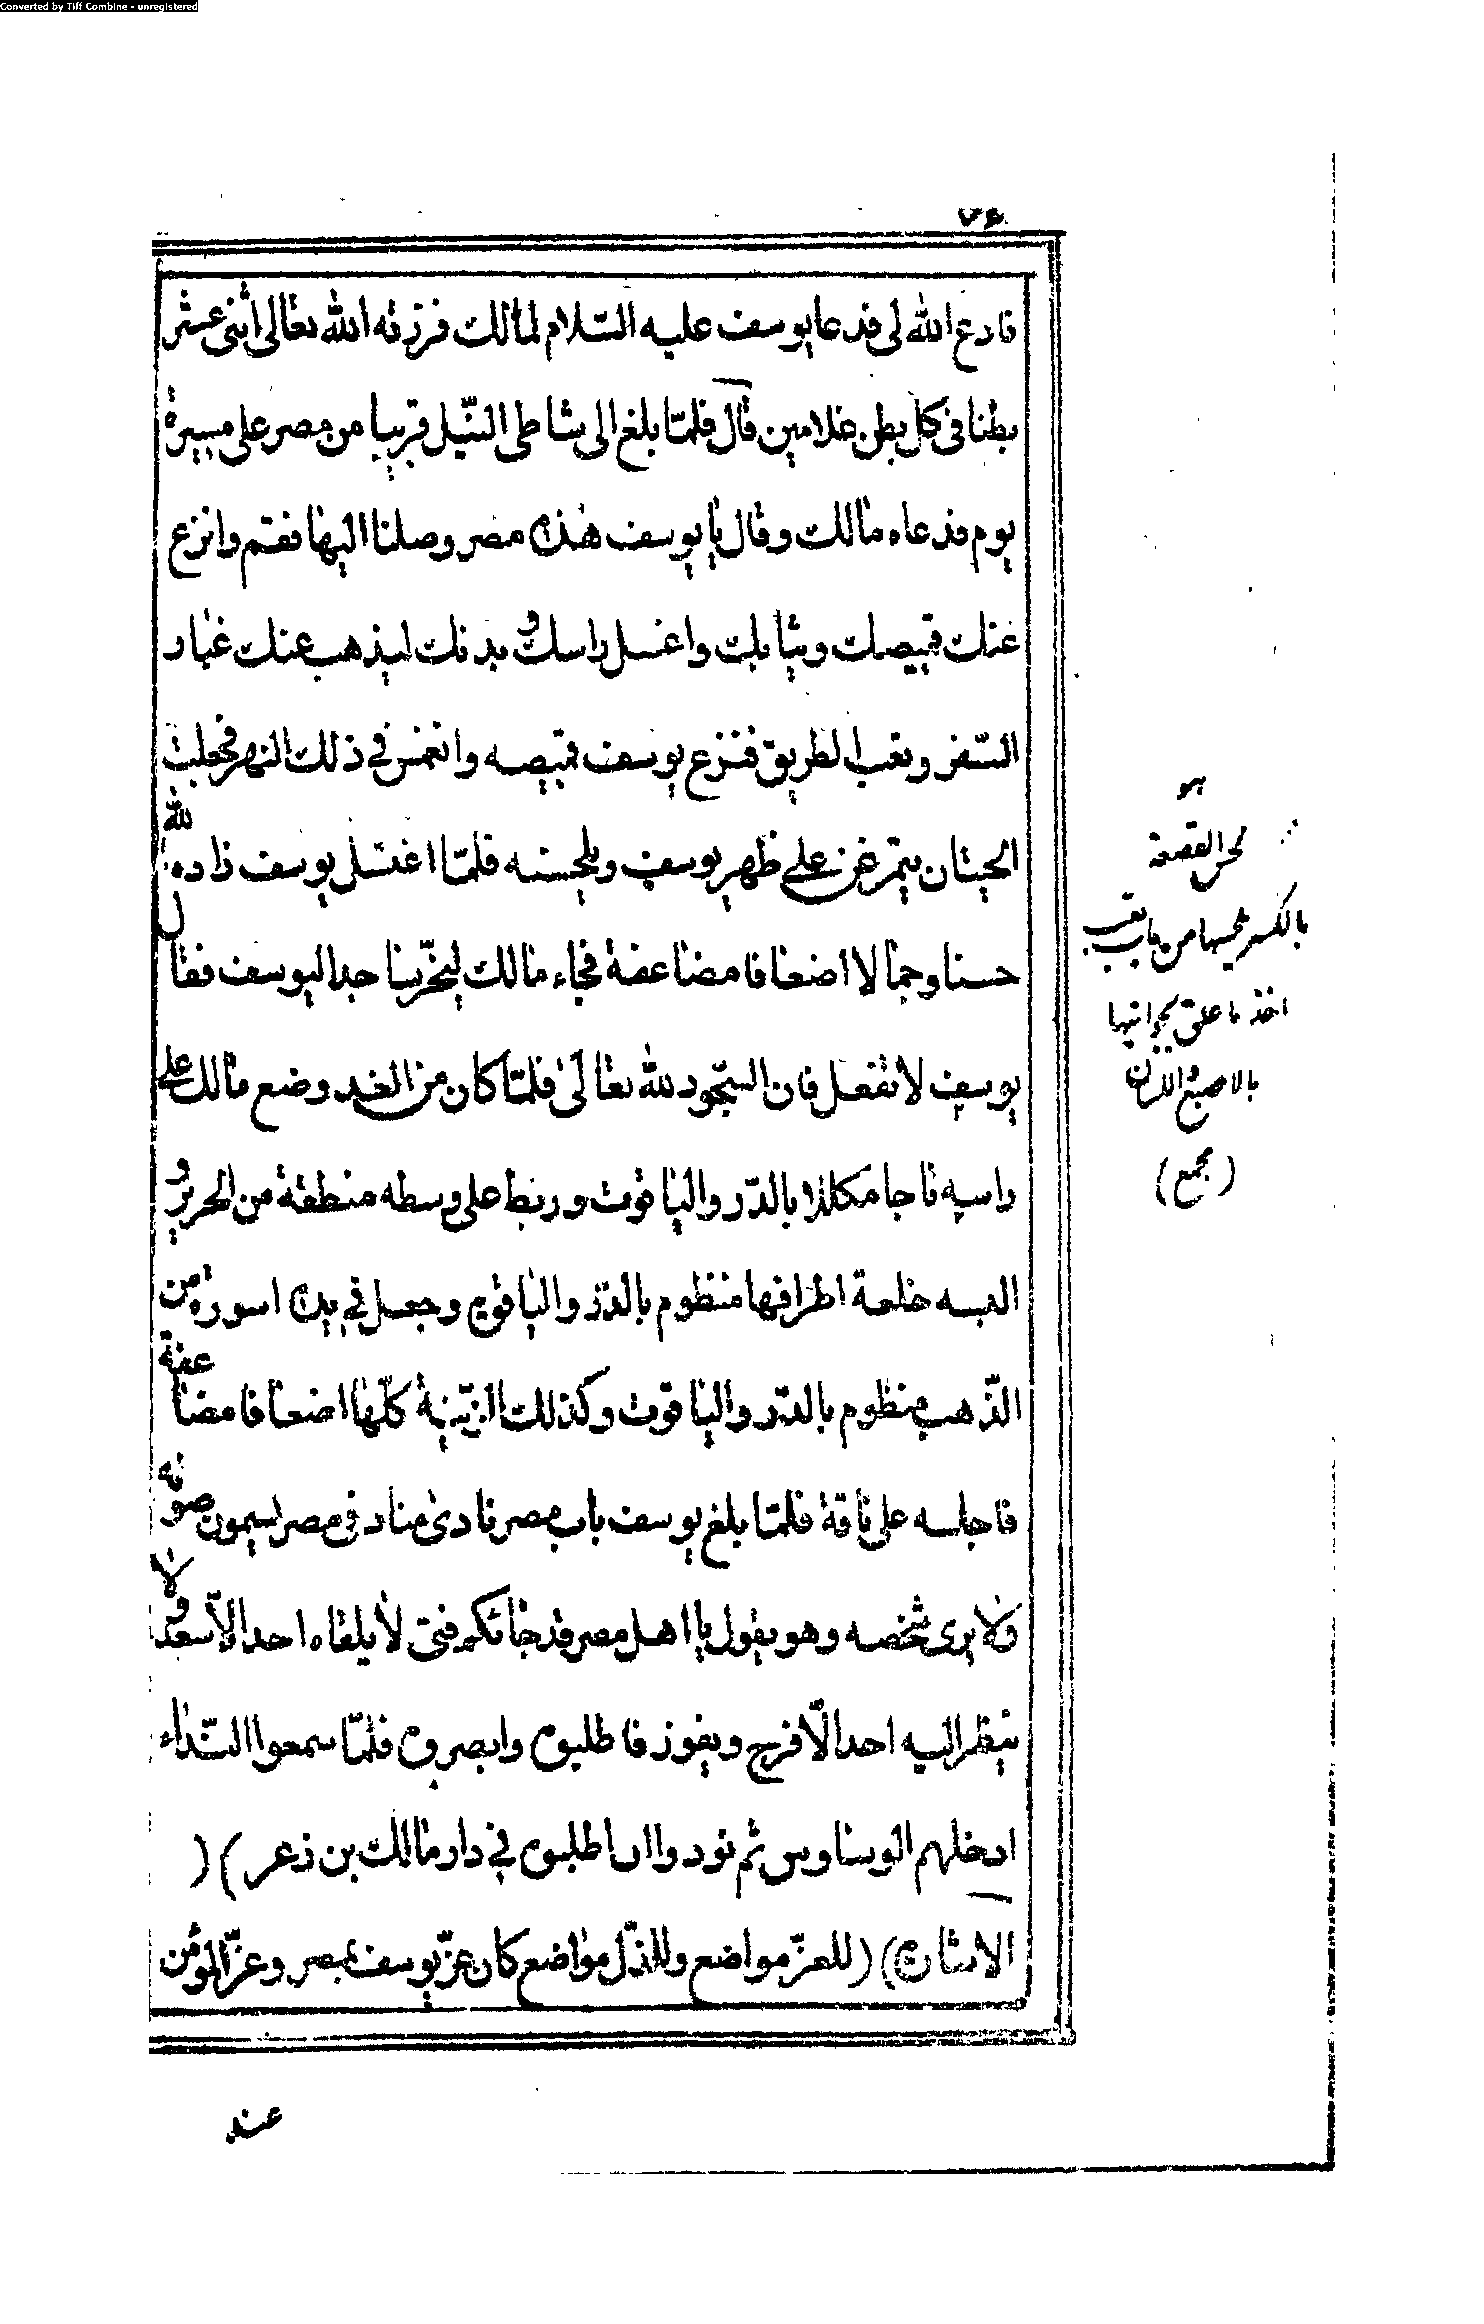 Converted by Tiff Combine - unregistered
٧٤
فادع الله لى فدعا يوسف عليه السّلام لمالك فرزقه الله تعالى اثنى عشر
بطنا فى كل بطن غلامين قال فلمّا بلغ الى شاطى النّيل قريبا من مصر على مسيرة
يوم فدعاه مالك وقال يا يوسف هذه مصر وصلنا اليها فقم وانزع
عنك قميصك وثيابك واغسل راسك و بدنك ليذهب عنك غبار
السّفر وتعب الطريق فنزع يوسف قميصه وانغمس فى ذلك النهر فجعلت
الحيتان يتمرغن على ظهر يوسف ويلحسنه فلمّا اغتسل يوسف زاده الله
حسنا وجمالا اضعافا مضاعفة فجاء مالك ليخرّ ساجدا ليوسف فقال
يوسف لا تفعل فان السّجود لله تعالى فلمّا كان من الغد وضع مالك على
راسه تاجا مكللا بالدّر والياقوت وربط على وسطه منطقة من الحرير و
البسه خلعة اطرافها منظوم بالدّر والياقوت وجعل فى يده اسورة من
الذّهب منظوم بالدّر والياقوت وكذلك الزّينة كلّها اضعافا مضاعفة
فاجلسه على ناقة فلمّا بلغ يوسف باب مصر نادى مناد فى مصر يسمعون صوته
ولا يرى شخصه وهو يقول يا اهل مصر قد جائكم فتى لا يلقاه احد الّا سعد ولا
ينظر اليه احد الّا فرح ويفوز فاطلبوه وابصروه فلمّا سمعوا النّداء
ادخلهم الوسناوس ثم نودوا ان اطلبوه فى دار مالك بن ذعر ) (
الاشارة) (للعزّ مواضع وللذّل مواضع كان عزّ يوسف بمصر وعزّ المؤمن
عند
لحس القصعة
بالكسر يلحسها من باب تعب
اخذ ما علق بجوانبها
بالاصبع و اللسان
(مجمع)